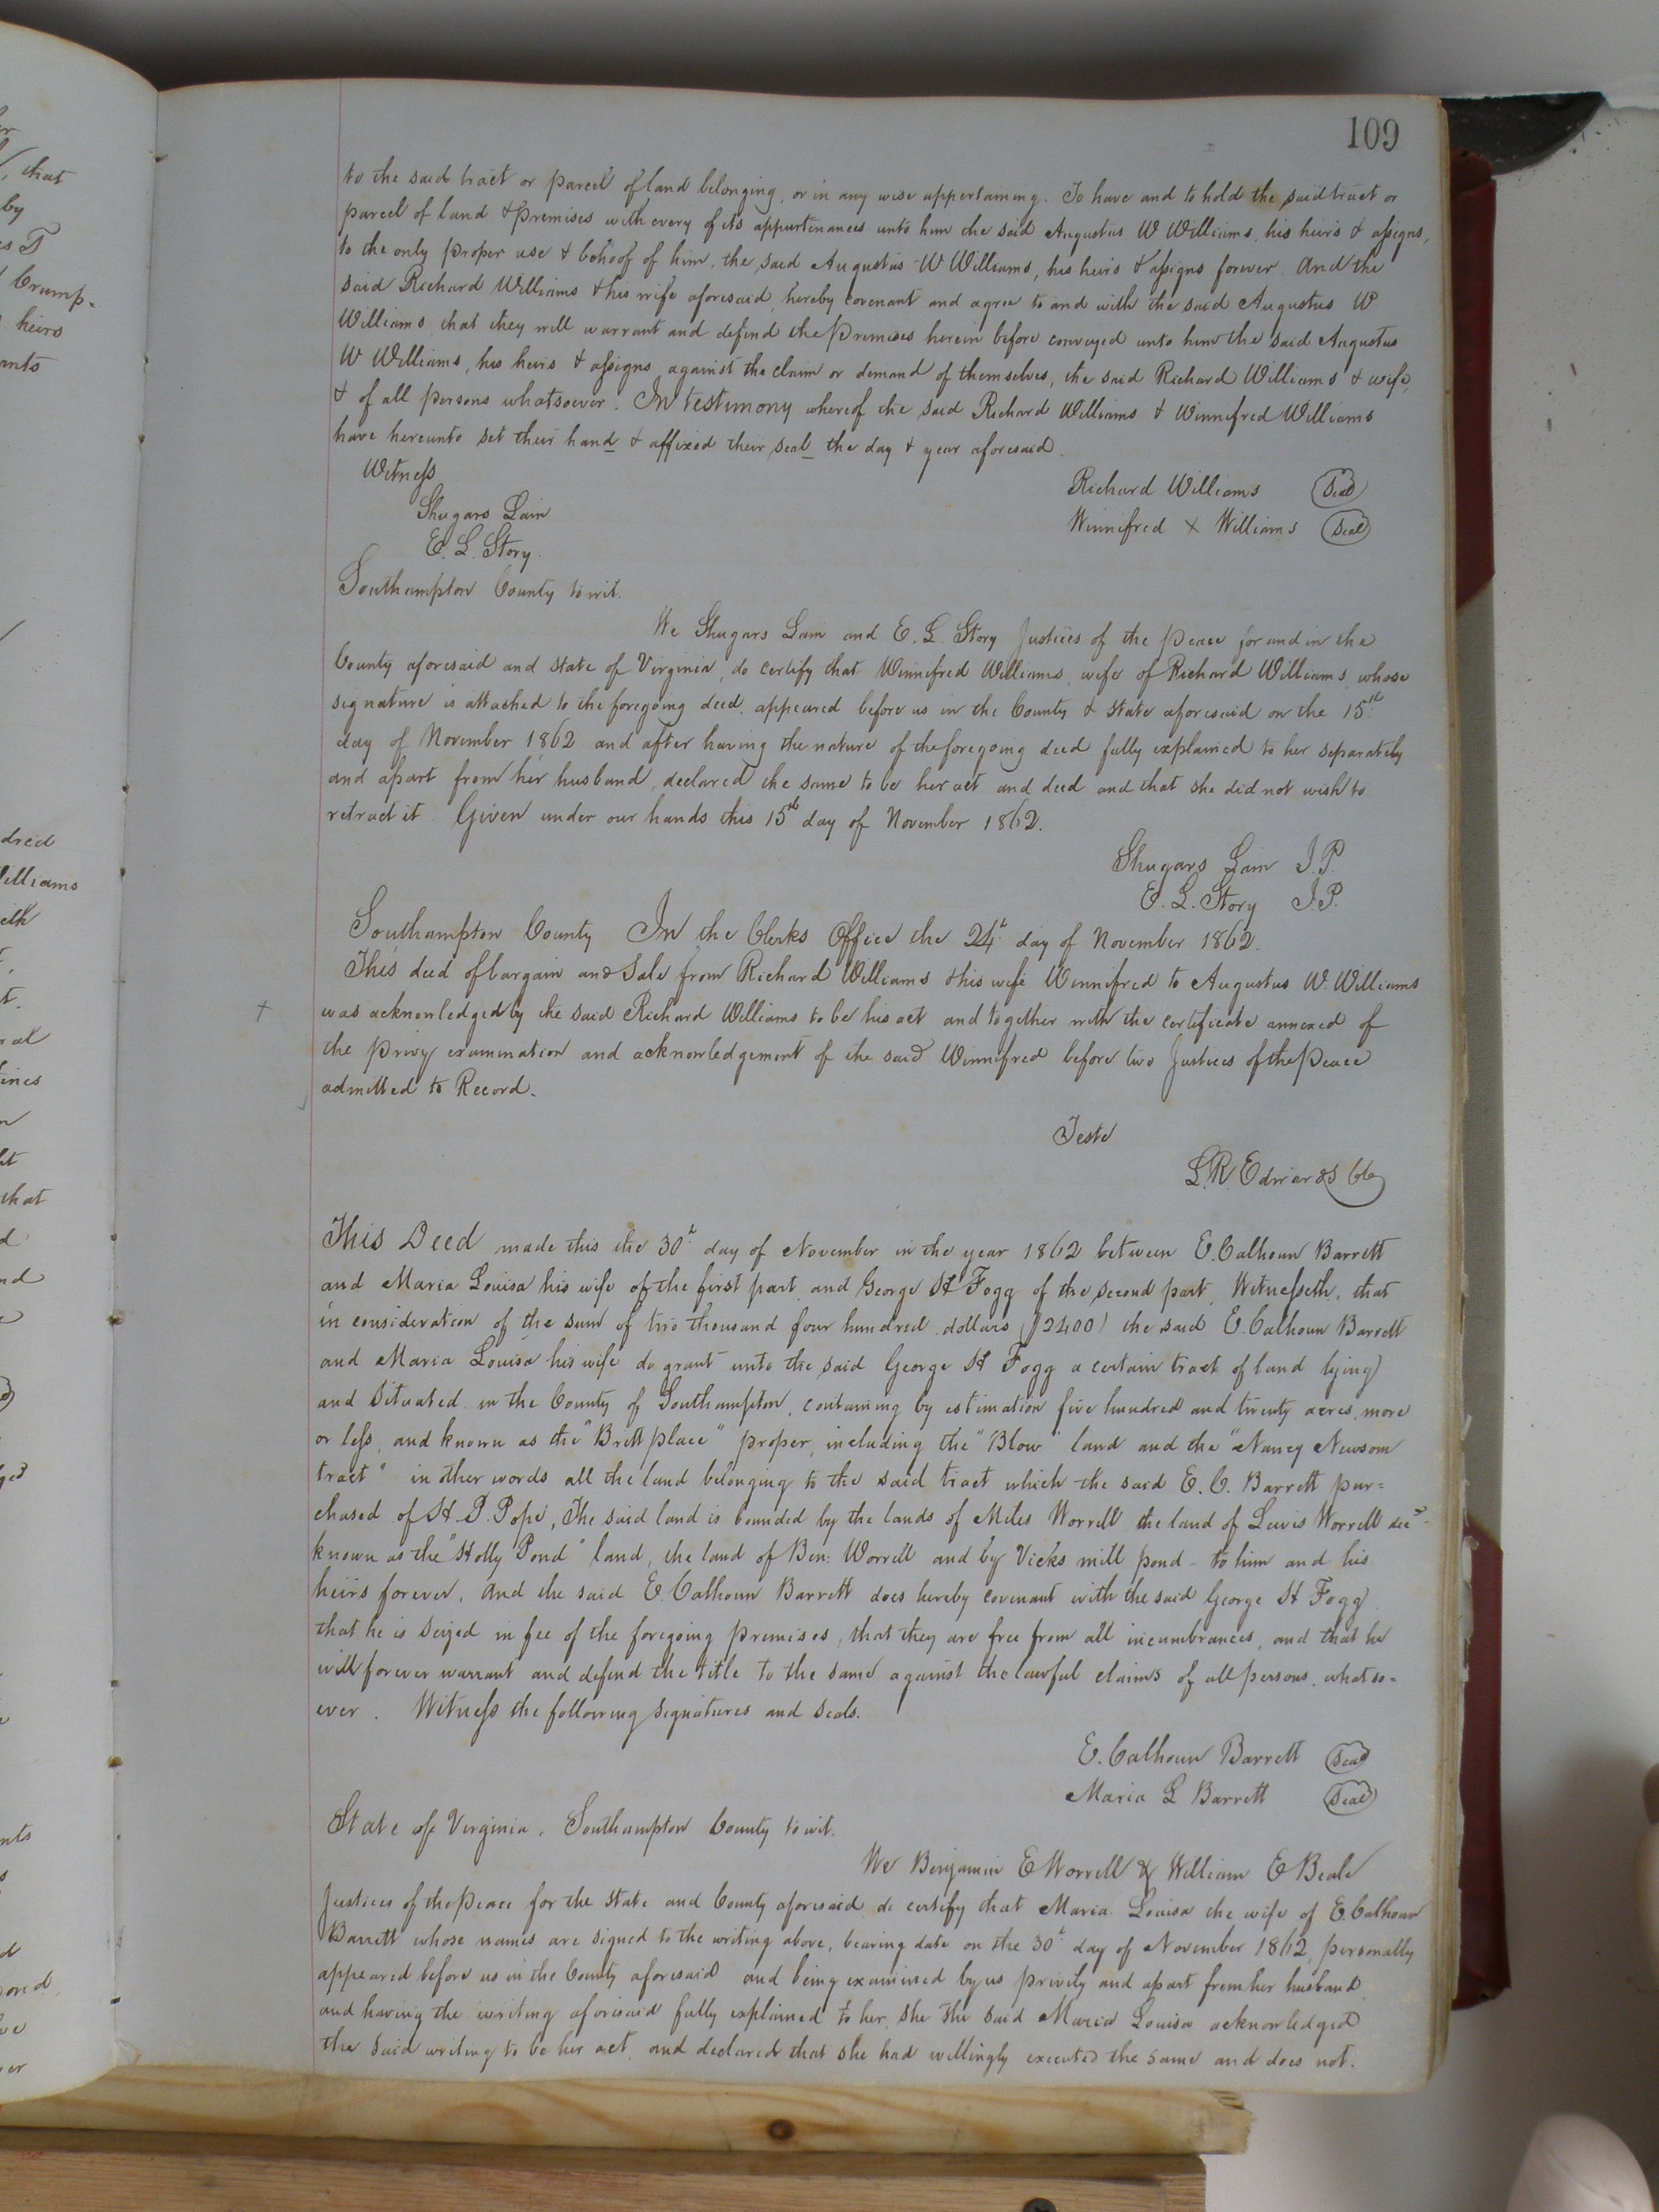 109
to the said tract or parcel of land belonging, or in any wise appertaining. To have and to hold the said tract or
parcel of land & premises with every of its appurtenances unto him the said Augustus W Williams, his heirs & assigns,
to the only proper use & behoof of him, the said Augustus W Williams, his heirs & assigns forever. And the
said Richard Williams & his wife aforesaid, hereby covenant and agree to and with the said Augustus W.
Williams that they will warrant and defend the premises herein before conveyed unto him the said Augustus
W Williams, his heirs & assigns against the claim or demand of themselves, the said Richard Williams & wife,
& of all persons whatsoever. In testimony whereof the said Richard Williams & Winnifred Williams
have hereunto set their hand & affixed their seal the day & year aforesaid.
Witness
Richard Williams (Seal)
Shugars Lain
Winnifred X Williams (Seal)
E. L. Story.
Southampton County to wit.
We Shugars Lain and E. L. Story Justices of the peace for and in the
County aforesaid and state of Virginia, do certify that Winnifred Williams, wife of Richard Williams, whose
signature is attached to the foregoing deed, appeared before us in the County & State aforesaid on the 15th
day of November 1862 and after having the nature of the foregoing deed fully explained to her separately
and apart from her husband, declared the same to be her act and deed and that she did not wish to
retract it. Given under our hands this 15th day of November 1862.
Shugars Lain J.P.
E. L. Story J.P.
Southampton County In the Clerks Office the 24th day of November 1862.
This deed of bargain and Sale from Richard Williams & his wife Winnifred to Augustus W. Williams
was acknowledged by the said Richard Williams to be his act and together with the certificate annexed of
the privy examination and acknowledgement of the said Winnifred before two Justices of the peace
admitted to Record.
Teste
L. R. Edwards Clk
This Deed made this the 30th day of November in the year 1862 between E. Calhoun Barrett
and Maria Louisa his wife of the first part, and George H Fogg of the second part, Witnesseth, that
in consideration of the sum of two thousand four hundred dollars ($2400) the said E. Calhoun Barrett
and Maria Louisa his wife do grant unto the said George H Fogg a certain tract of land lying
and situated in the County of Southampton, containing by estimation five hundred and twenty acres, more
or less, and known as the "Britt place" proper, including the "Blow" land and the "Nancy Newsom
tract" in other words all the land belonging to the said tract which the said E. C. Barrett pur=
chased of H. P. Pope, The said land is bounded by the lands of Miles Worrell the land of Lewis Worrell decd
known as the "Holly Pond" land, the land of Ben: Worrell and by Vicks mill pond - to him and his
heirs forever. And the said E. Calhoun Barrett does hereby covenant with the said George H Fogg
that he is seized in fee of the foregoing premises, that they are free from all incumbrances, and that he
will forever warrant and defend the title to the same against the lawful claims of all persons, whatso=
ever. Witness the following signatures and seals.
E. Calhoun Barrett (Seal)
Maria L Barrett (Seal)
State of Virginia, Southampton County to wit.
We Benjamin E Worrell & William E Beale
Justices of the peace for the State and County aforesaid do certify that Maria Louisa the wife of E. Calhoun
Barrett whose names are signed to the writing above, bearing date on the 30th day of November 1862, personally
appeared before us in the County aforesaid and being examined by us privily and apart from her husband
and having the writing aforesaid fully explained to her, she the said Maria Louisa acknowledged
the said writing to be her act, and declared that she had willingly executed the same and does not.